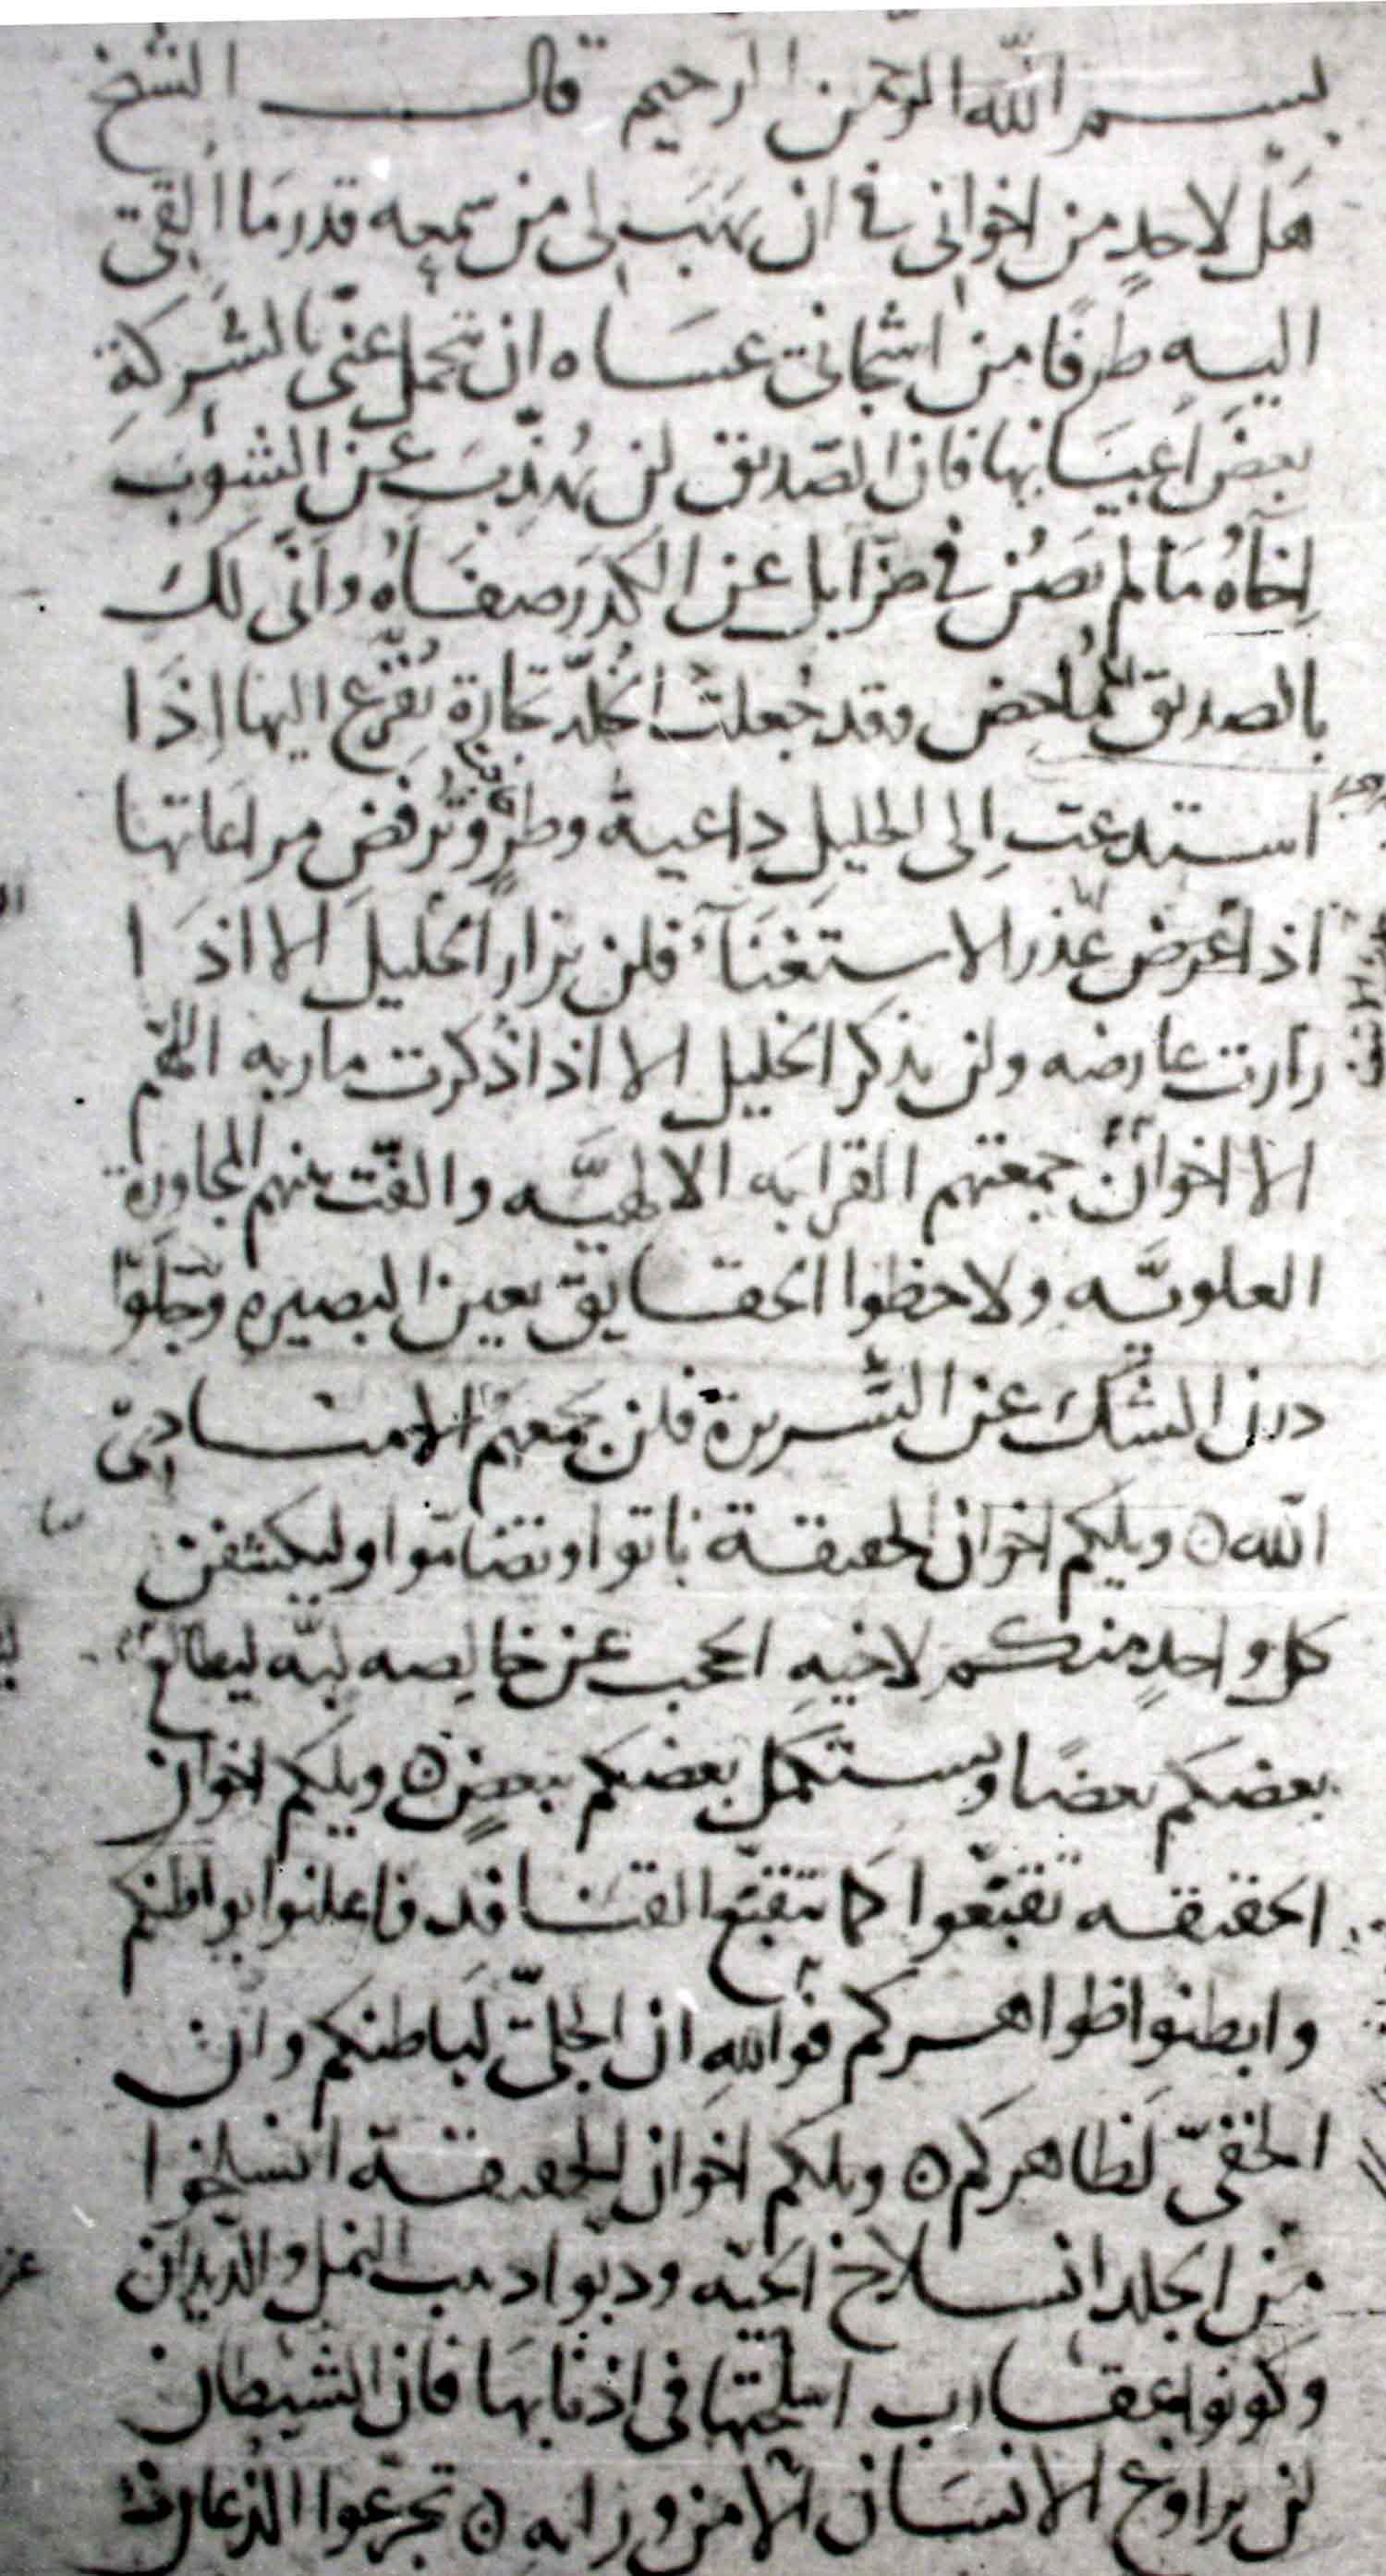 بسم الله الرحمن الرحيم قال الشيخ
هل لاحدٍ من اخوانى فى ان يهب لى من سمعه قدر ما القى
اليه طرفًا من اشجانى عساه ان تحمل عنى بالشركةِ
بعض اعبائها فان الصديق لن يهذّب عن الشوب
اخاهُ ما لم يصُن فى ضرّائك عن الكدر صفاهُ وانّى لك
بالصديق المماحض وقد جُعلت الخُلّة تجارة يُفزع اليها اذا
استدعت الى الخليل داعية وطرٍ وتُرفض مراعاتها
اذا عرض عذر الاستغنآء فلن يزار الخليل الا اذا
زارت عارضه ولن يذكر الخليل الا اذا ذكرت ماربه اللهم
الا اخوانٌ جمعتهم القرابه الالهيّه والفّت بينهم المجاورة
العلويّه ولاحظوا الحقايق بعين البصيره وجَلَوا
درن الشك عن السّريرة فلن يجمعهم الا منادى
الله ۝ ويلكم اخوان الحقيقة باثوا وتضامّوا وليكشفن
كل واحدٍ منكم لاخيهِ الحجب عن خالِصه لبّه ليطالع
بعضكم بعضًا وليستكمل بعضكم ببعضٍ ۝ ويلكم اخوان
الحقيقه تقبّعوا كما تتقبّع القنافد فاعلنوا بواطنكم
وابطنوا ظواهركم فوالله ان الجلىّ لباطنكم وان
الخفىّ لظاهركم ۝ ويلكم اخوان الحقيقة انسلخوا
من الجلد انسلاخ الحيّه ودبّوا دبيب النمل والديدان
وكونوا عقارب اسلحتها فى اذنابها فان الشيطان
لن يراوغ الانسان الا من ورائه ۝ تجرّعوا الذعاف